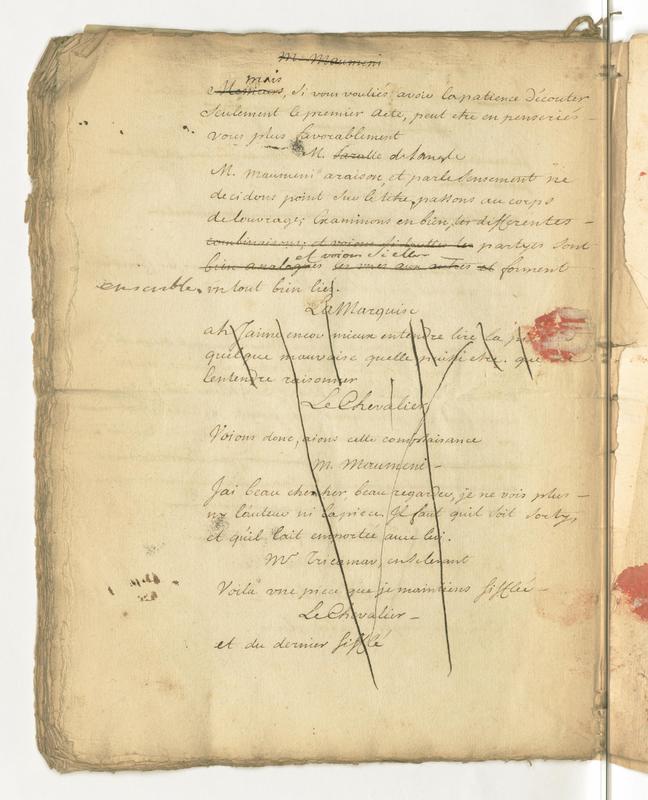 M. Maumeni
mais
Messieurs, si vous vouliés avoir la patience d'écouter
seulement le premier acte, peut etre en penseriés
vous plus favorablement
M. de
M. maumeni a raison et parle sensement ne
decidons point sur le titre, passons au corps
de louvrage; Examinons en bien, les differentes
combinaisons; et voions si toutes les partyes sont
et voions si elles
bien analogues les unes aux autres et forment
ensemble. un tout bien lies.
La Marquise
ah J'aime encor mieux entendre lire la
quelque mauvaise quelle puisse etre. que
lentendre raisonner
Le Chevalier
Voions donc, aions cette complaisance
M. Maumeni
J'ai beau chercher, beau regarder, je ne vois plus
ny l'auteur ni la piece, Il faut quil soit sorty,
et quil lait emportée avec lui.
Mr Tricamar, en se levant
Voila une piece que je maintiens sifflée
Le Chevalier
et du dernier sifflé